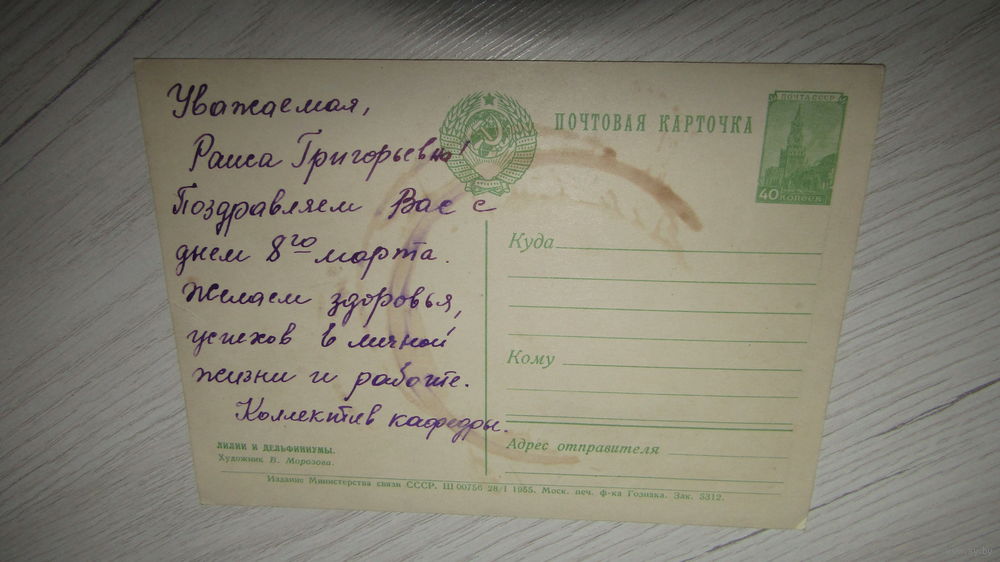 Уважаемая,
Раиса Григорьевна!
Поздравляем Вас с
днем 8го марта.
Желаем здоровья,
успехов в личной
жизни и работе.
Коллектив кафедры.
ЛИЛИИ И ДЕЛЬФИНИУМЫ.
Художник В. Морозова.
ПОЧТОВАЯ КАРТОЧКА
ПОЧТА СССР
40 КОПЕЕК
Куда
Кому
Адрес отправителя
Издание Министерства связи СССР. Ш 00756 28/I 1955. Моск. печ. ф-ка Гознака. Зак. 5312.